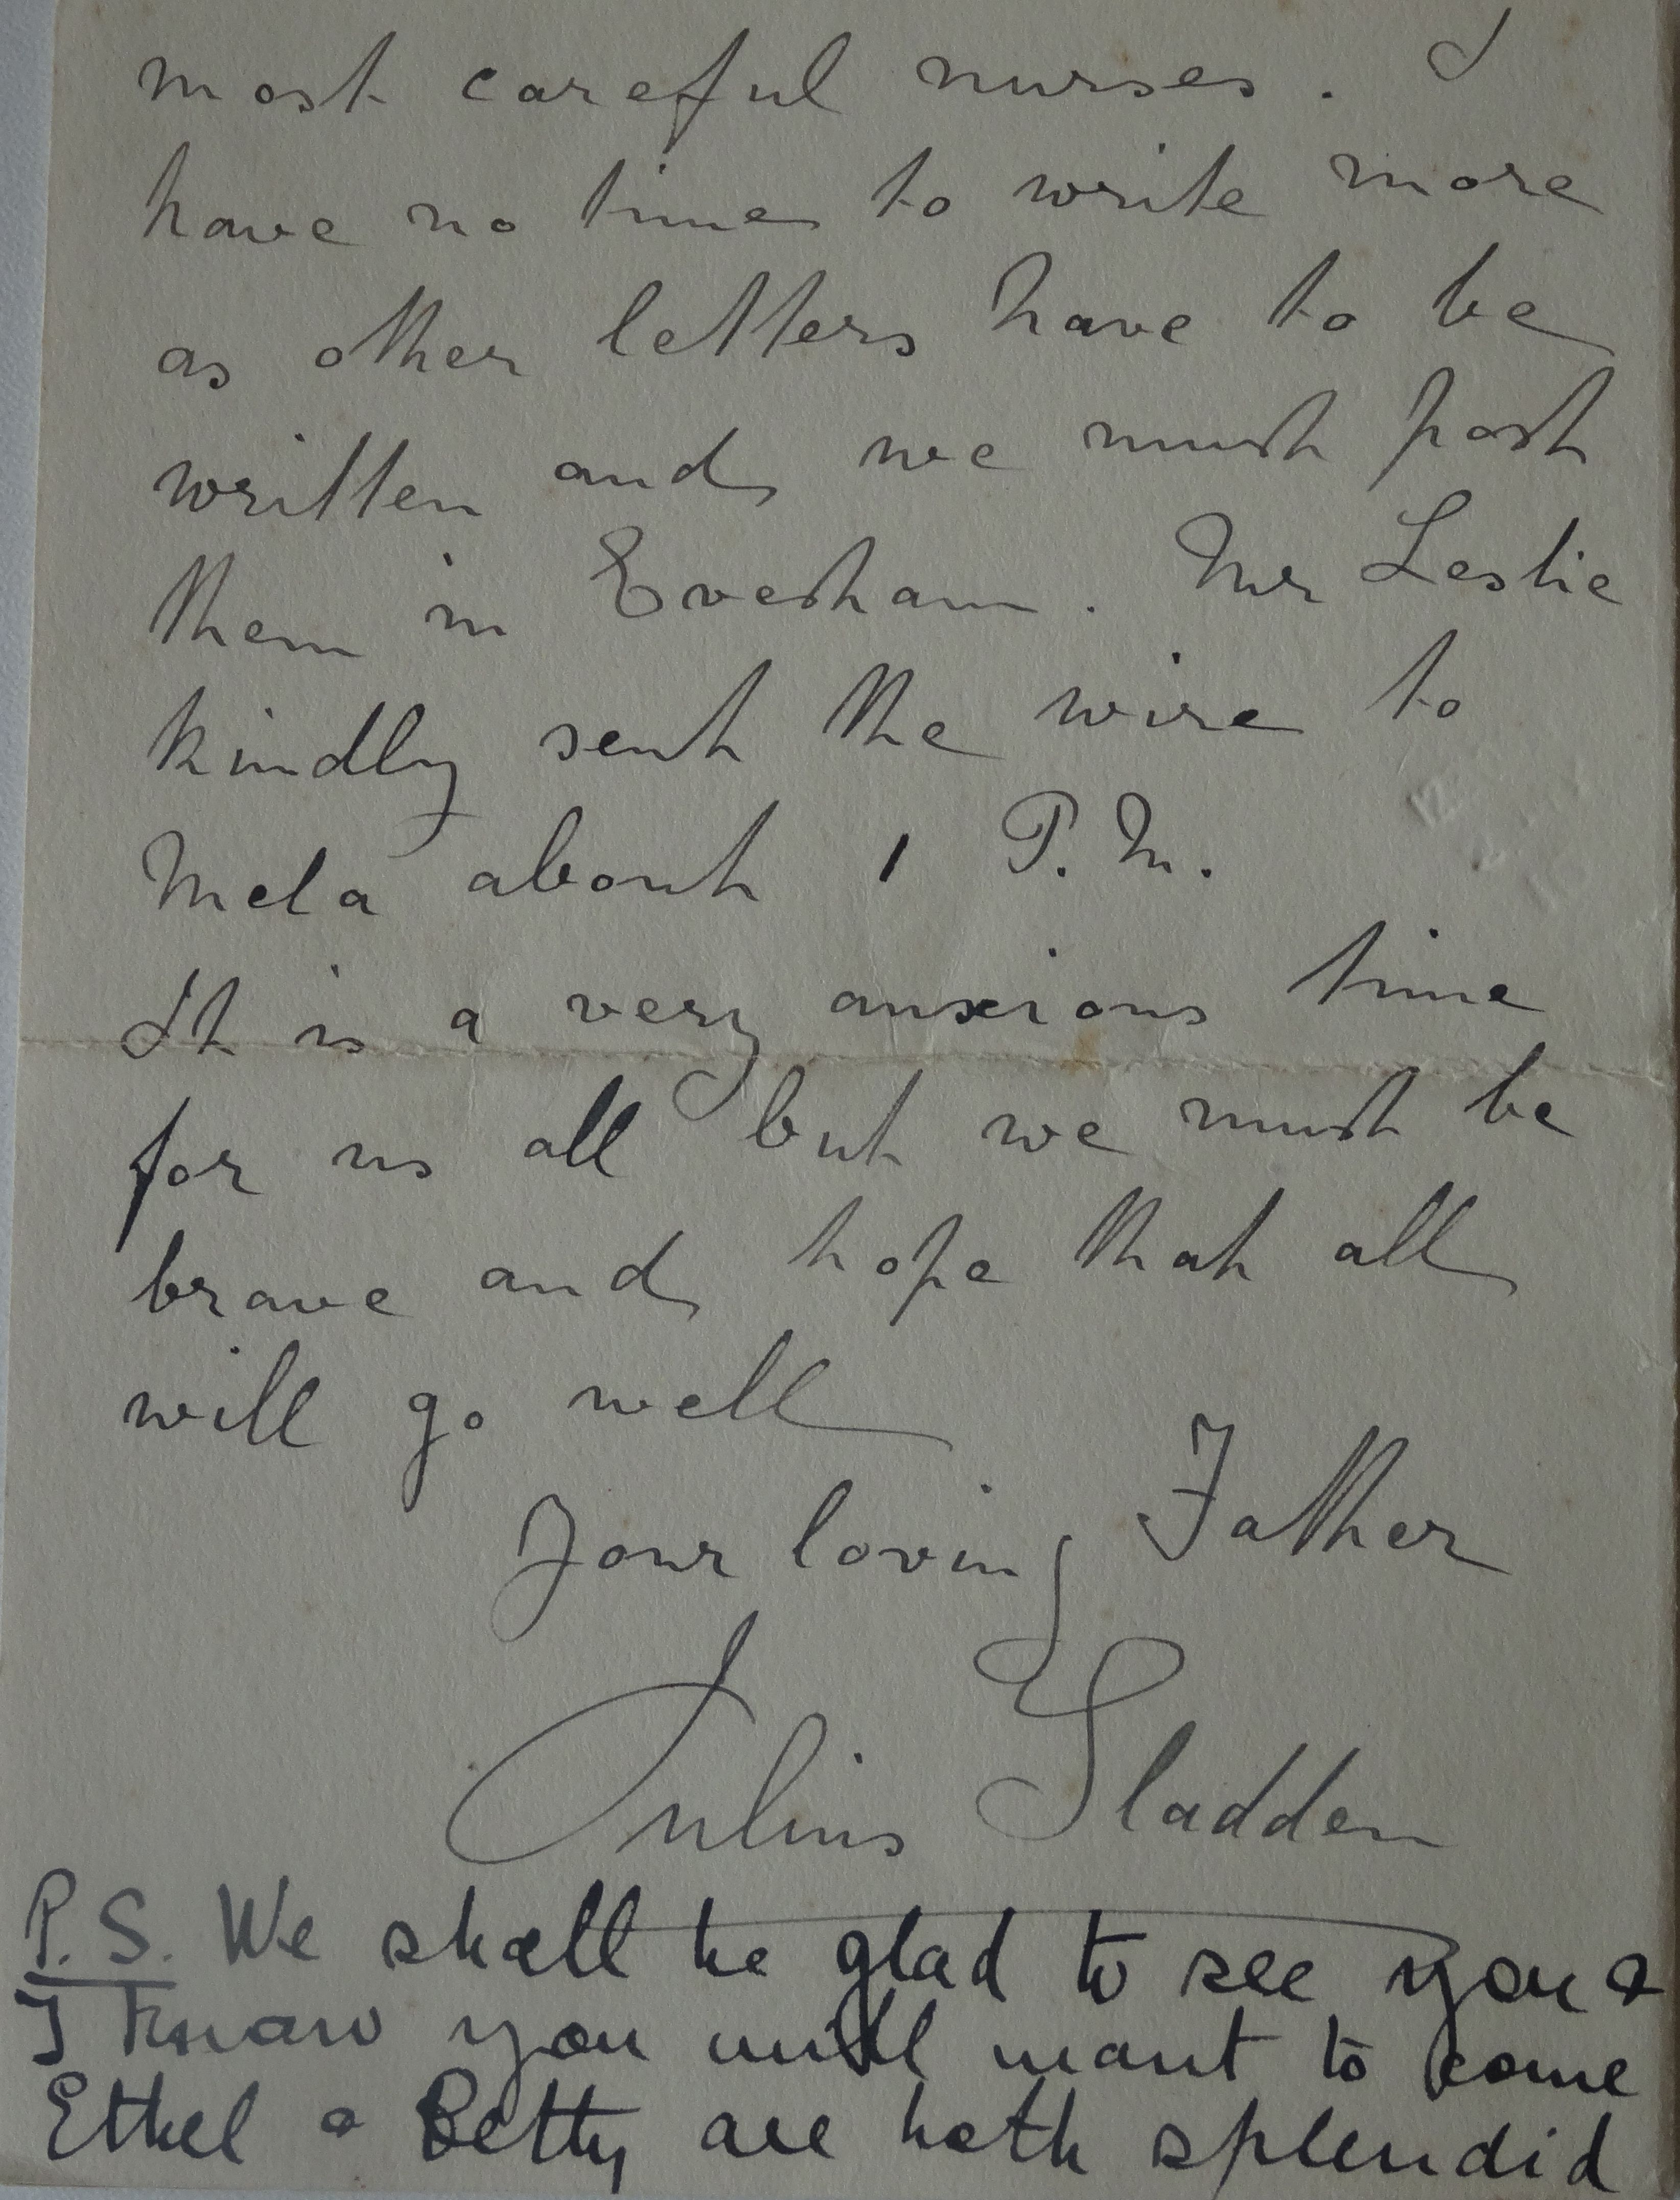 most careful nurses. I
have no time to write more
as other letters have to be
written and we must post
them in Evesham. Mr Leslie
kindly sent the wire to
Mela about 1 P.M.
It is a very anxious time
for us all but we must be
brave and hope that all
will go well
Your loving Father
Julius Sladden
P.S. We shall be glad to see you &
I know you will want to come
Ethel & Betty are both splendid